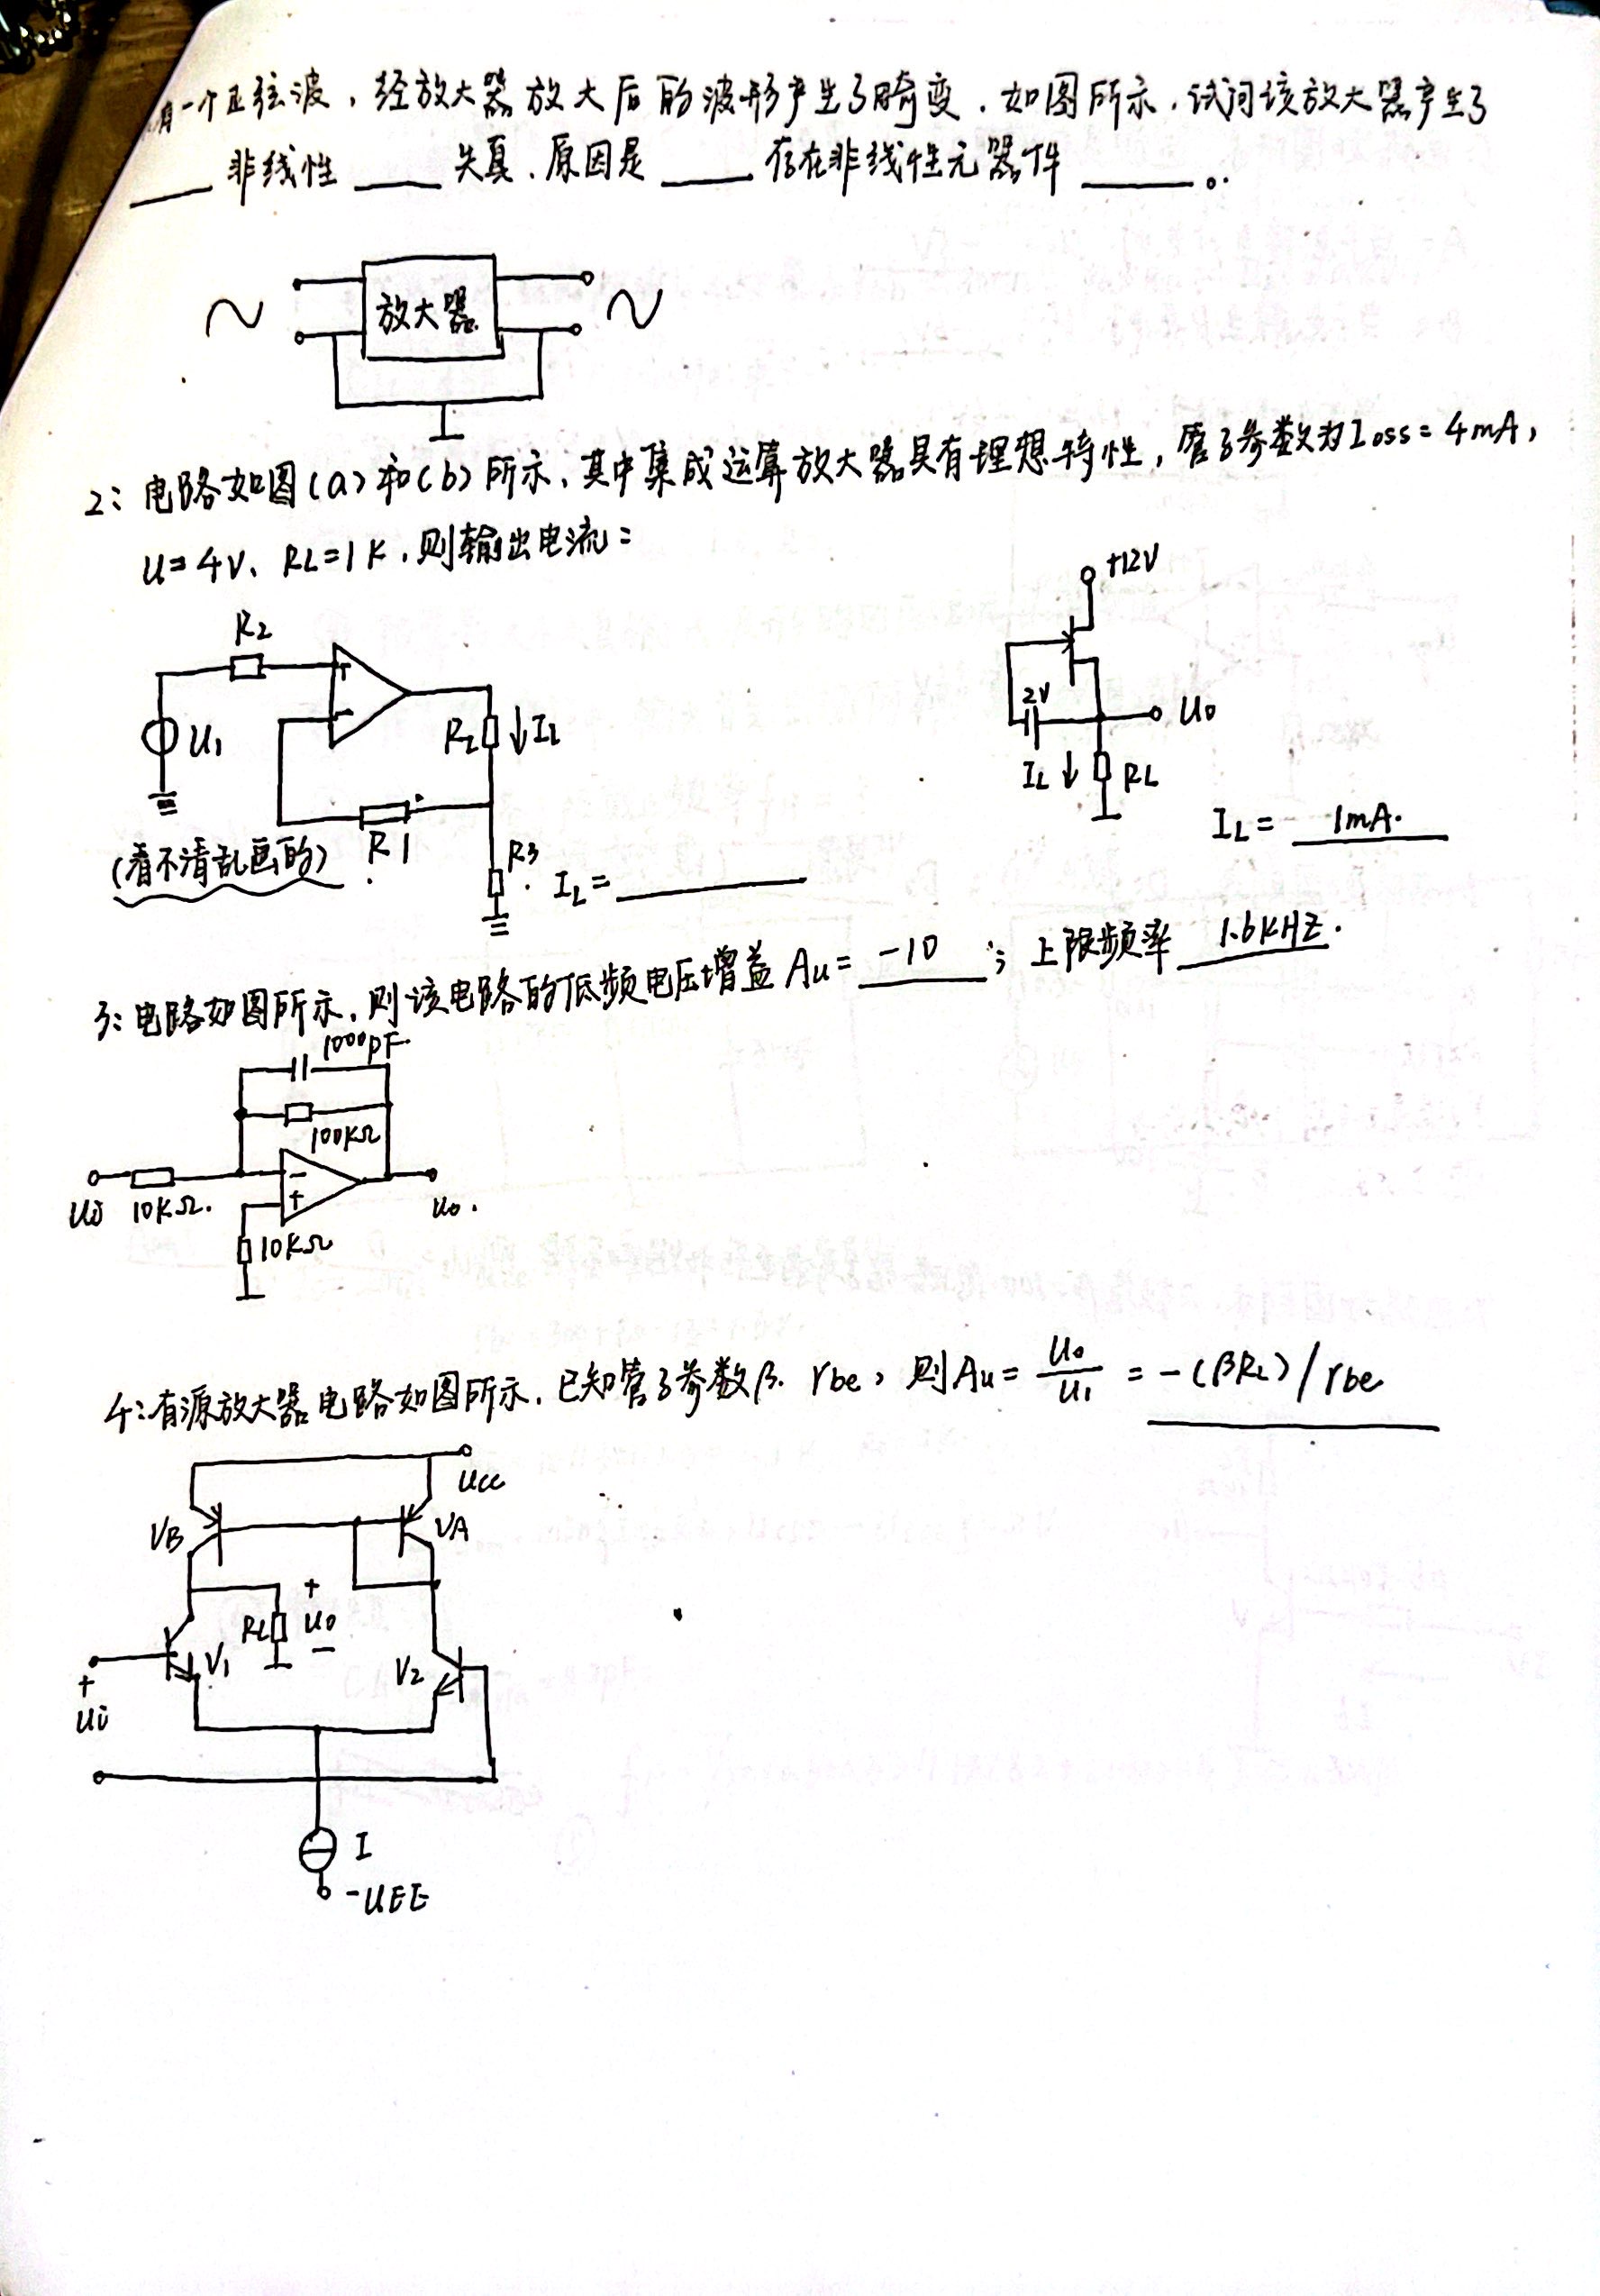 有一个正弦波，经放大器放大后的波形产生了畸变．如图所示．试问该放大器产生了
非线性 失真．原因是 存在非线性元器件 。
放大器
2：电路如图(a)和(b)所示．其中集成运算放大器具有理想特性，管子参数为IDSS=4mA，
U=4V、RL=1K．则输出电流：
R2
+
-
U1
RL
IL
R1
R3
(看不清乱画的)
IL=
+12V
2V
U0
IL
RL
IL= 1mA.
3：电路如图所示．则该电路的低频电压增益Au= -10 ；上限频率 1.6KHZ.
1000pF
100KΩ
-
+
Ui
10KΩ.
U0.
10KΩ
4：有源放大器电路如图所示．已知管子参数β. rbe，则Au= U0/U1 = -(βRL)/rbe
Ucc
VB
VA
RL
+
U0
-
V1
V2
+
Ui
I
-UEE